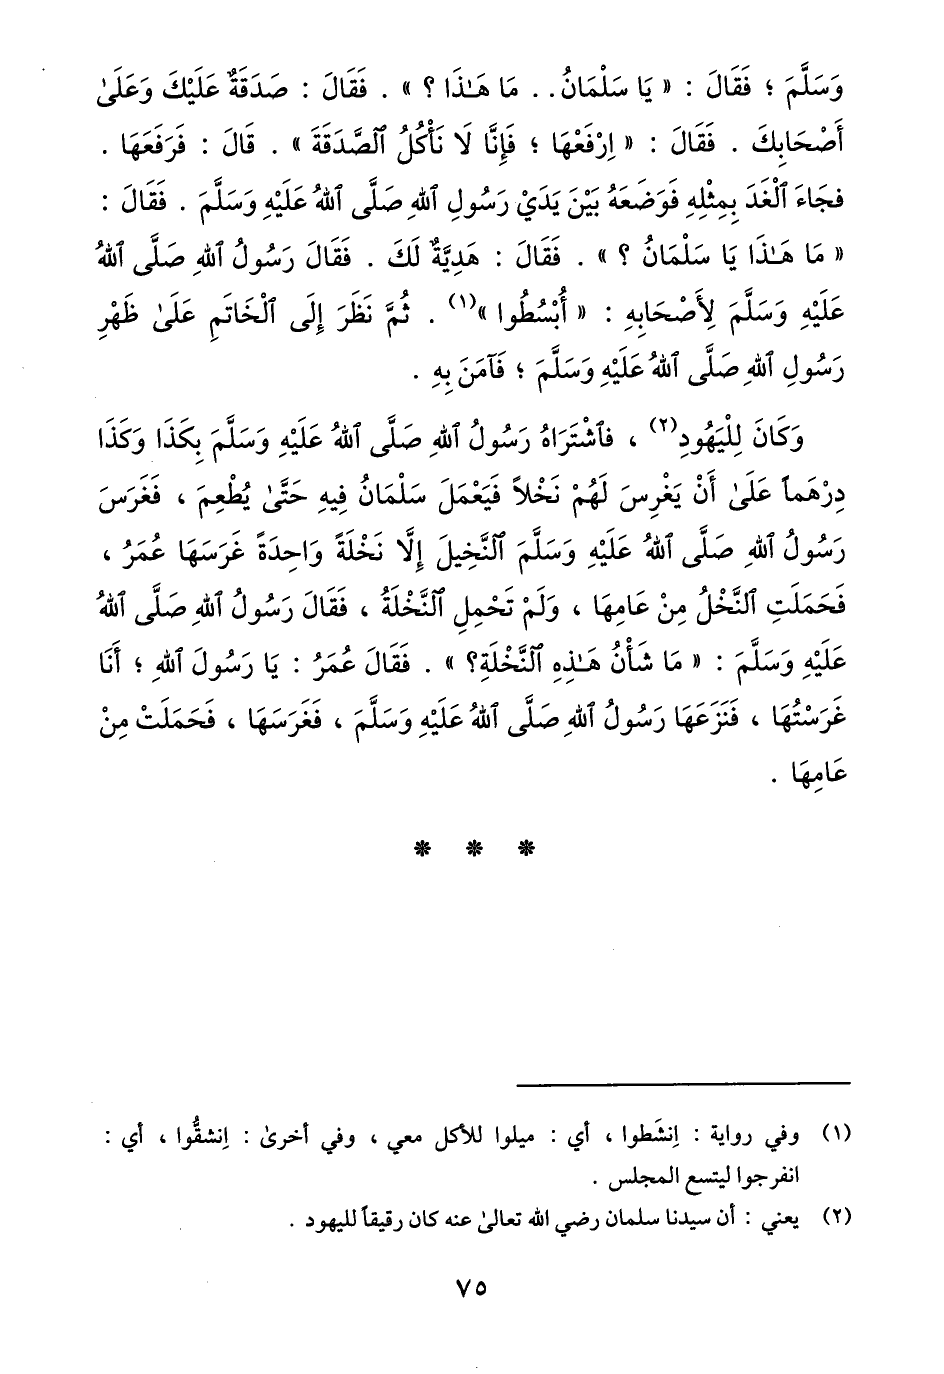 وَسَلَّمَ ؛ فَقَالَ : « يَا سَلْمَانُ.. مَا هَـٰذَا ؟ » . فَقَالَ : صَدَقَةٌ عَلَيْكَ وَعَلَىٰ
أَصْحَابِكَ . فَقَالَ : « اِرْفَعْهَا ؛ فَإِنَّا لَا نَأْكُلُ ٱلصَّدَقَةَ » . قَالَ : فَرَفَعَهَا .
فَجَاءَ ٱلْغَدَ بِمِثْلِهِ فَوَضَعَهُ بَيْنَ يَدَيْ رَسُولِ ٱللهِ صَلَّى ٱللهُ عَلَيْهِ وَسَلَّمَ . فَقَالَ :
« مَا هَـٰذَا يَا سَلْمَانُ ؟ » . فَقَالَ : هَدِيَّةٌ لَكَ . فَقَالَ رَسُولُ ٱللهِ صَلَّى ٱللهُ
عَلَيْهِ وَسَلَّمَ لِأَصْحَابِهِ : « أُبْسُطُوا »(١) . ثُمَّ نَظَرَ إِلَى ٱلْخَاتَمِ عَلَىٰ ظَهْرِ
رَسُولِ ٱللهِ صَلَّى ٱللهُ عَلَيْهِ وَسَلَّمَ ؛ فَآمَنَ بِهِ .
وَكَانَ لِلْيَهُودِ(٢) ، فَٱشْتَرَاهُ رَسُولُ ٱللهِ صَلَّى ٱللهُ عَلَيْهِ وَسَلَّمَ بِكَذَا وَكَذَا
دِرْهَماً عَلَىٰ أَنْ يَغْرِسَ لَهُمْ نَخْلاً فَيَعْمَلَ سَلْمَانُ فِيهِ حَتَّىٰ يُطْعِمَ ، فَغَرَسَ
رَسُولُ ٱللهِ صَلَّى ٱللهُ عَلَيْهِ وَسَلَّمَ ٱلنَّخِيلَ إِلَّا نَخْلَةً وَاحِدَةً غَرَسَهَا عُمَرُ ،
فَحَمَلَتِ ٱلنَّخْلُ مِنْ عَامِهَا ، وَلَمْ تَحْمِلِ ٱلنَّخْلَةُ ، فَقَالَ رَسُولُ ٱللهِ صَلَّى ٱللهُ
عَلَيْهِ وَسَلَّمَ : « مَا شَأْنُ هَـٰذِهِ ٱلنَّخْلَةِ؟ » . فَقَالَ عُمَرُ : يَا رَسُولَ ٱللهِ ؛ أَنَا
غَرَسْتُهَا ، فَنَزَعَهَا رَسُولُ ٱللهِ صَلَّى ٱللهُ عَلَيْهِ وَسَلَّمَ ، فَغَرَسَهَا ، فَحَمَلَتْ مِنْ
عَامِهَا .
* * *
(١) وفي رواية : اِنشَطوا ، أي : ميلوا للأكل معي ، وفي أخرىٰ : اِنشقُّوا ، أي :
انفرجوا ليتسع المجلس .
(٢) يعني : أن سيدنا سلمان رضي الله تعالىٰ عنه كان رقيقاً لليهود .
٧٥